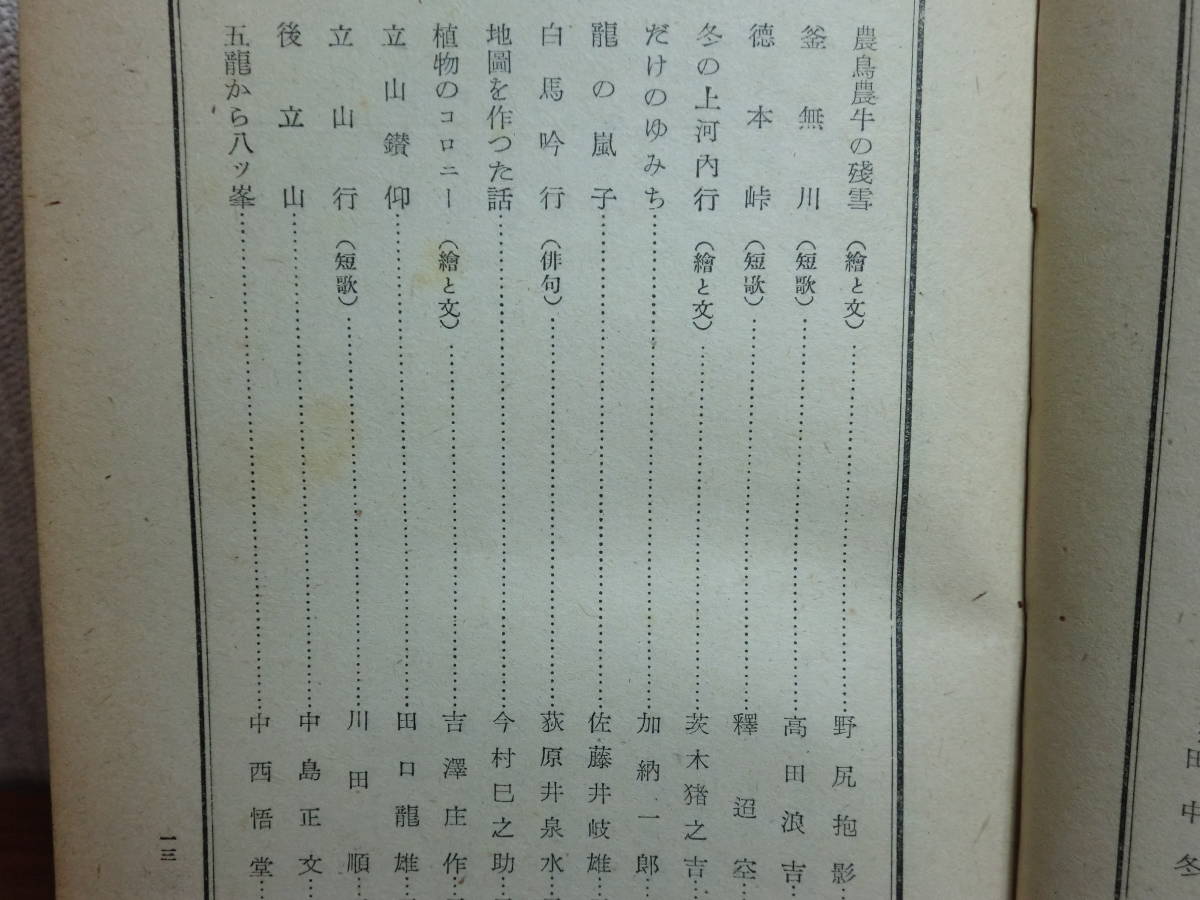 農鳥農牛の殘雪(繪と文)……野尻抱影
釜無川(短歌)……高田浪吉
德本峠(短歌)……釋迢空
冬の上河內行(繪と文)……茨木猪之吉
だけのゆみち……加納一郎
龍の嵐子……佐藤井岐雄
白馬吟行(俳句)……荻原井泉水
地圖を作つた話……今村巳之助
植物のコロニー(繪と文)……吉澤庄作
立山鑽仰……田口龍雄
立山行(短歌)……川田順
後立山……中島正文
五龍から八ッ峯……中西悟堂
一三
田中冬